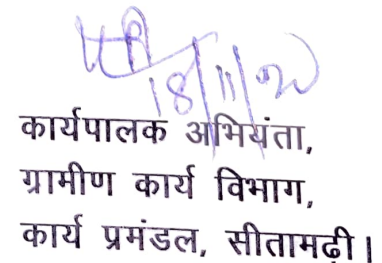 18/11/20
कार्यपालक अभियंता,
ग्रामीण कार्य विभाग,
कार्य प्रमंडल, सीतामढ़ी।